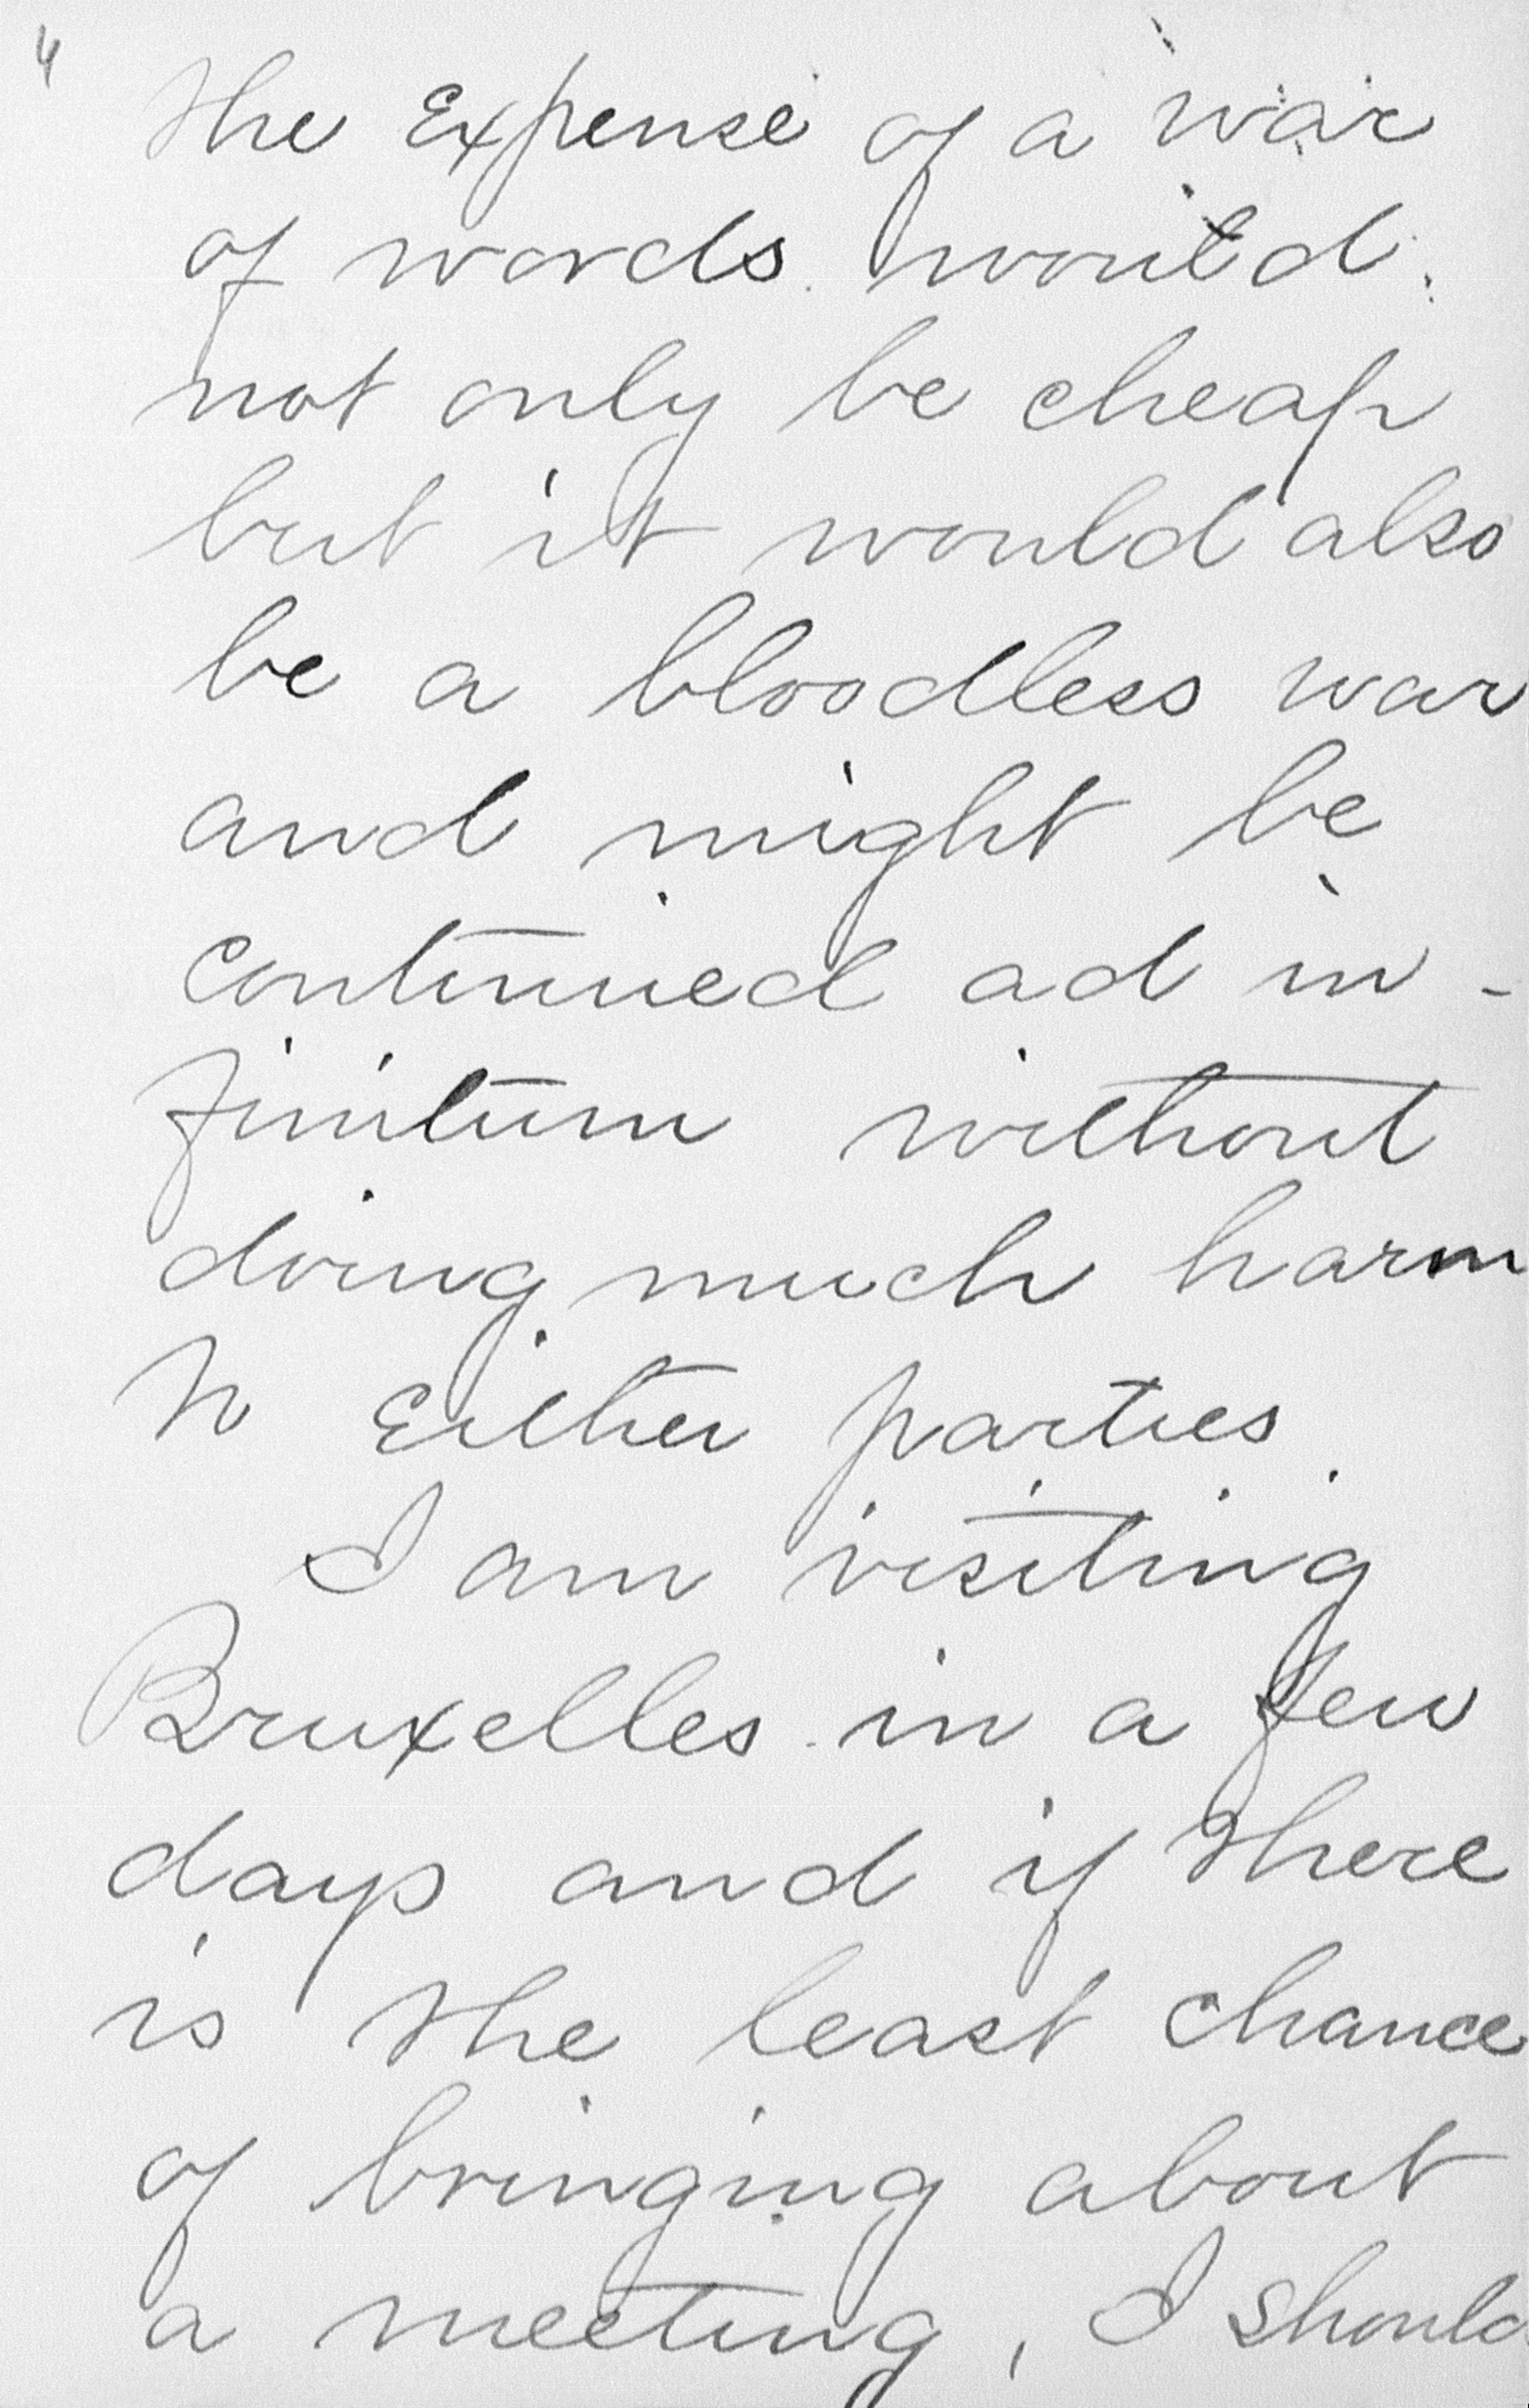 4
the Expense of a war
of words would
not only be cheap
but it would also
be a bloodless war
and might be
continued ad in-
finitum without
doing much harm
to Either parties
I am visiting
Bruxelles in a few
days and if there
is the least chance
of bringing about
a meeting, I should